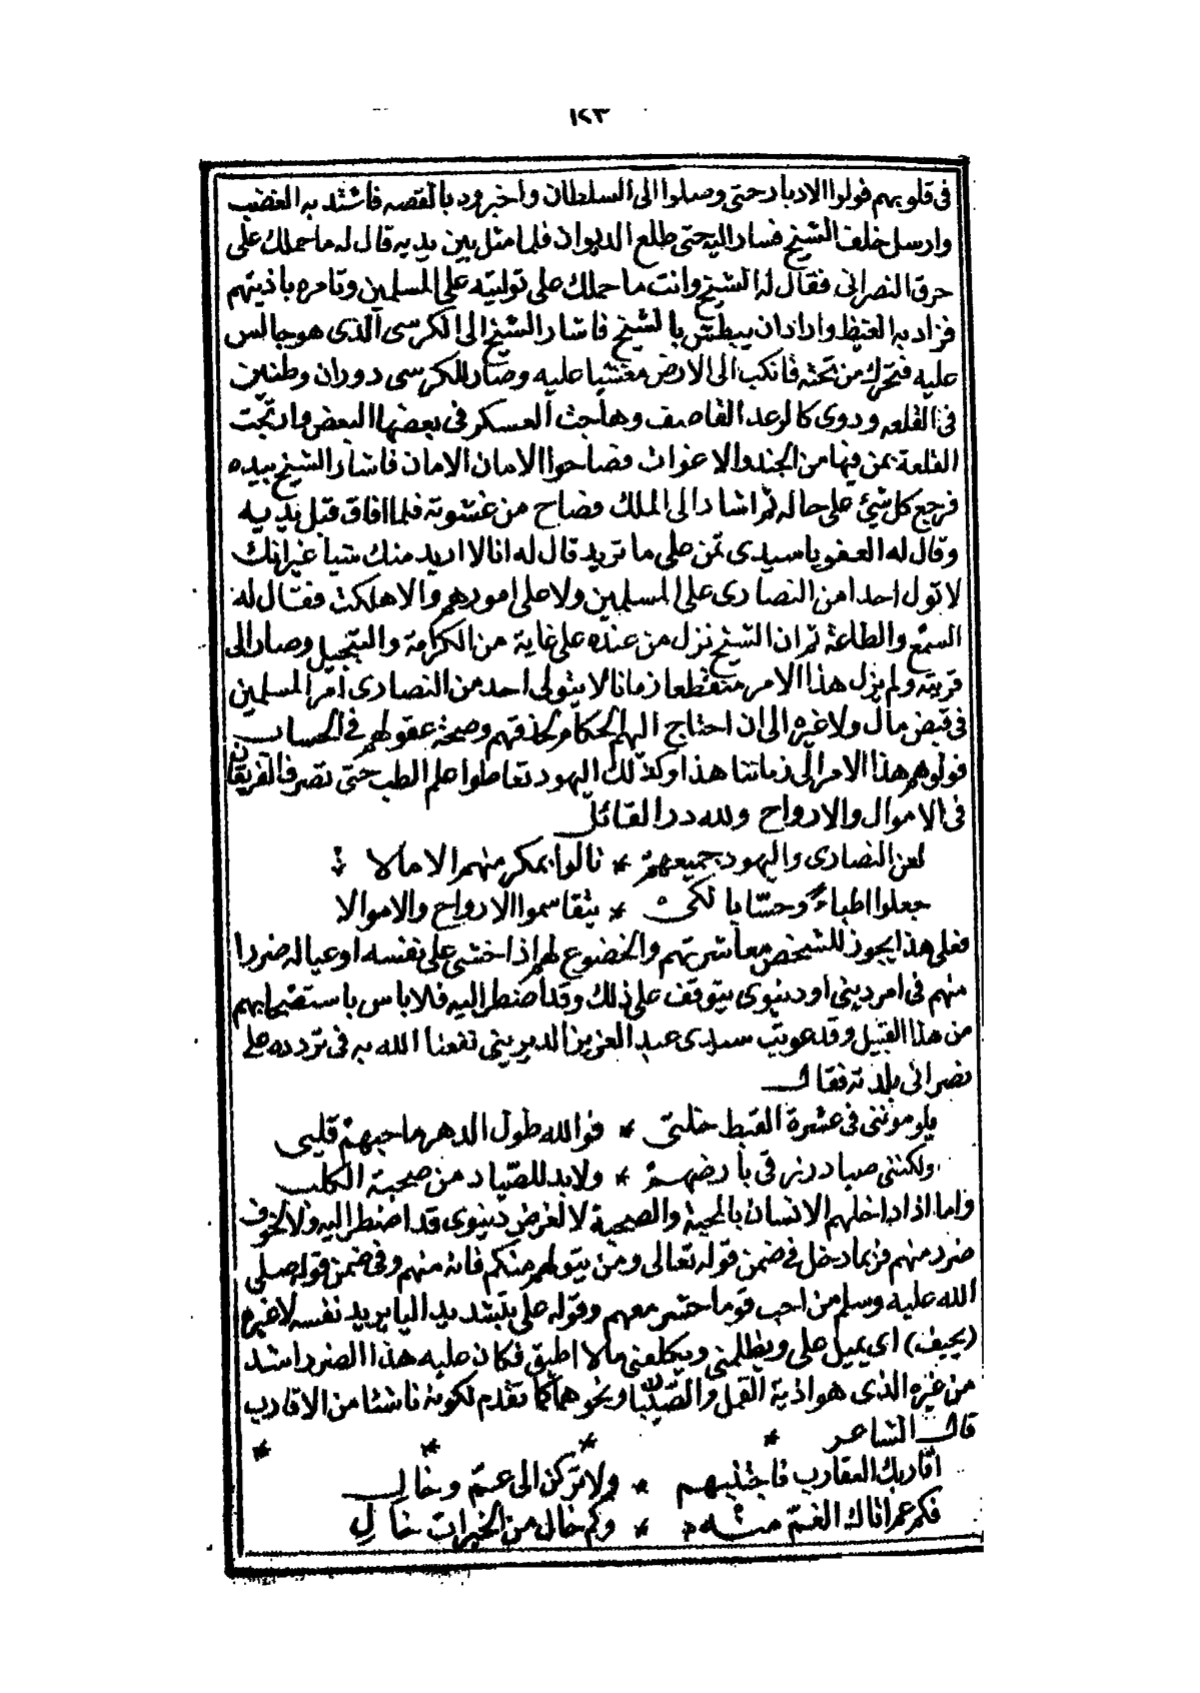 ١٢٣
فى قلوبهم فولوا الادبار حتى وصلوا الى السلطان واخبروه بالقصه فاشتد به الغضب
وارسل خلف الشيخ فسار اليه حتى طلع الديوان فلما مثل بين يديه قال له ما حملك على
حرق النصرانى فقال له الشيخ وانت ما حملك على توليته على المسلمين وتامره باذيتهم
فزاد به الغيظ واراد ان يبطش بالشيخ فاشار الشيخ الى الكرسى الذى هو جالس
عليه فتحرك من تحته فانكب الى الارض مغشيا عليه وصار للكرسى دوران وطنين
فى القلعه ودوى كالرعد القاصف وهاجت العسكر فى بعضها البعض وارتجت
القلعة بمن فيها من الجند والاعوان وصاحوا الامان الامان فاشار الشيخ بيده
فرجع كل شئ على حاله ثم اشار الى الملك وصاح من غشوته فلما افاق قبل يديه
وقال له العفو يا سيدى تمن على ما تريد قال له انا لا اريد منك شيا غير انك
لا تول احدا من النصارى على المسلمين ولا على امورهم والا هلكت فقال له
السمع والطاعة ثم ان الشيخ نزل من عنده على غاية من الكرامة والتبجيل وصار الى
قريته ولم يزل هذا الامر منقطعا زمانا لا يتولى احد من النصارى امر المسلمين
فى قبض مال ولا غيره الى ان احتاج اليهم الحكام لحذقهم وصحة عقولهم فى الحساب
فولوهم هذا الامر الى زماننا هذا وكذلك اليهود تعاطوا علم الطب حتى تصرف الفريقان
فى الاموال والارواح ولله در القائل
لعن النصارى واليهود جميعهم * نالوا بمكر منهم الامالا
جعلوا اطباءً وحسّابا لكى * يتقاسموا الارواح والاموالا
فعلى هذا يجوز للشخص معاشرتهم والخضوع لهم اذا خشى على نفسه او عياله ضررا
منهم فى امر دينى او دنيوى يتوقف على ذلك وقد اضطر اليه فلا باس باستصحابهم
من هذا القبيل وقد عوتب سيدى عبد العزيز الديرينى نفعنا الله به فى تردده على
نصرانى بلدته فقال
يلوموننى فى عشرة القبط خلتى * فوالله طول الدهر ما حبهم قلبى
ولكننى صياد رزقى بارضهم * ولا بد للصّياد من صحبة الكلب
واما اذا داخلهم الانسان بالمحبة والصحبة لا لغرض دنيوى قد اضطر اليه ولا لخوف
ضرر منهم فربما دخل فى ضمن قوله تعالى ومن يتولهم منكم فانه منهم وفى ضمن قوله صلى
الله عليه وسلم من احب قوما حشر معهم وقوله على بتشديد اليا يريد نفسه لا غيره
(يحيف) اى يميل على ويظلمنى ويكلفنى ما لا اطيق فكان عليه هذا الضرر اشد
من غيره الذى هو اذية القمل والصّيبان ونحوهما كما تقدم لكونه ناشئا من الاقارب
قال الشاعر * * * *
اقاربك العقارب فاجتنبهم * ولا تركن الى عمّ وخال
فكم عم اتاك الغمّ منه * وكم خال من الخيرات خال